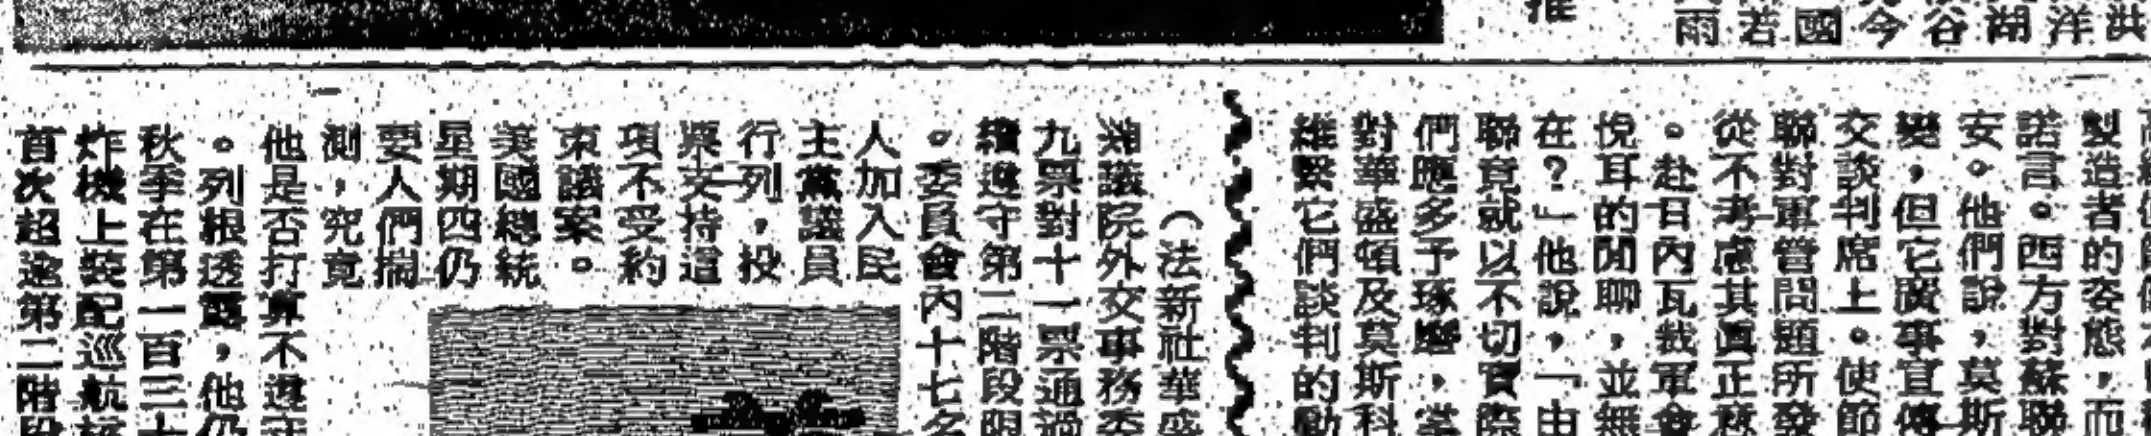 洪
洋
湖
谷
今
國
若
雨
推
製造者的姿態，而
諾言。西方對蘇聯
安。他們說，莫斯
變，但它厲事宣傳
交談判席上。使節
聯對軍管問題所發
從不考慮其真正務
。赴日內瓦裁軍會
悅耳的閒聊，並無
在？」他說，「由
聯竟就以不切實際
們應多予琢磨，當
對華盛頓及莫斯科
維繫它們談判的動
（法新社華盛
議院外交事務委
九票對十一票通過
續遵守第二階段限
。委員會內十七名
人加入民
主黨議員
行列，投
票支持這
項不受約
束議案。
美國總統
星期四仍
要人們揣
測，究竟
他是否打算不遵守
。列根透露，他仍
秋季在第一百三十
炸機上裝配巡航
首次超逾第二階段